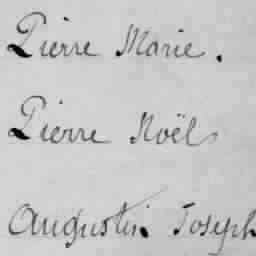 Pierre Marie.
Pierre Noël
Augustin Joseph